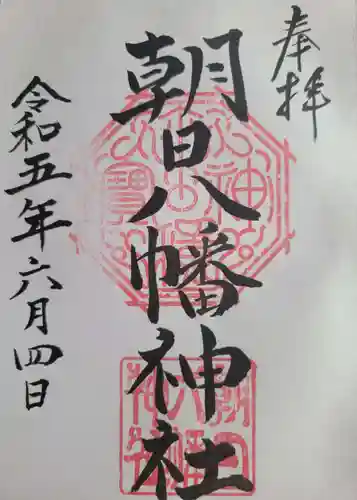 奉拝
朝日八幡神社
令和五年六月四日